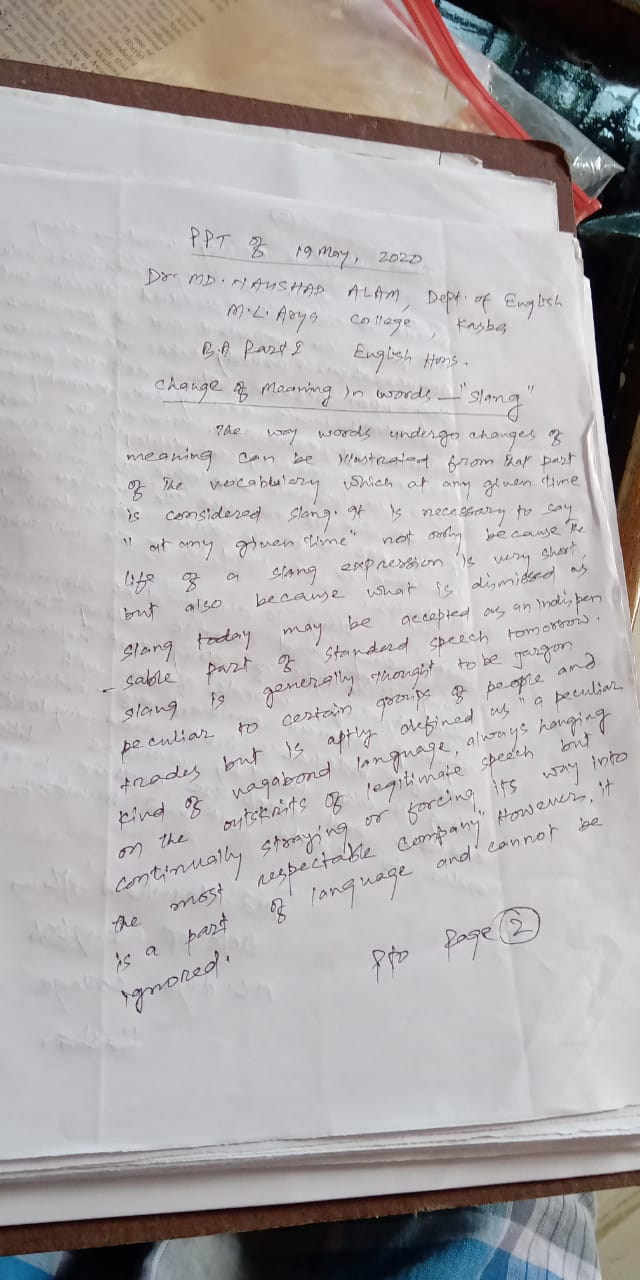 PPT of 19 May, 2020
Dr. MD. NAUSHAD ALAM, Dept. of English
M.L. Arya College, Kasba
B.A Part 2 English Hons.
Change of Meaning in words — "Slang"
The way words undergo changes of
meaning can be illustrated from that part
of the vocabulary which at any given time
is considered slang. It is necessary to say
"at any given time" not only because the
life of a slang expression is very short,
but also because what is dismissed as
slang today may be accepted as an indispen
- sable part of standard speech tomorrow.
slang is generally thought to be jargon
peculiar to certain groups of people and
trades but is aptly defined as "a peculiar
kind of vagabond language, always hanging
on the outskirts of legitimate speech but
continually straying or forcing its way into
the most respectable company". However, it
is a part of language and cannot be
ignored.
Pto Page 2